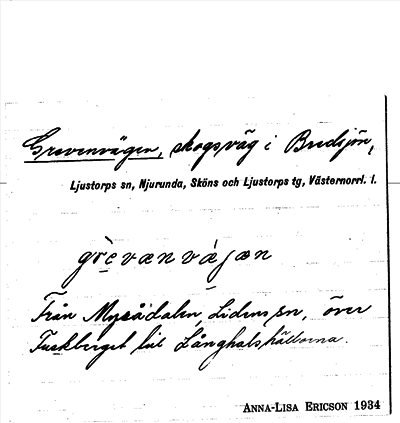 Grevenvägen, skogsväg i Bredsjön,
Ljustorps sn, Njurunda, Sköns och Ljustorps tg, Västernorrl. l.
grèvænvá̱jæn
Från Mysådalen, Lidens sn, över
Tuskberget till Långhalshällorna.
ANNA-LISA ERICSON 1934